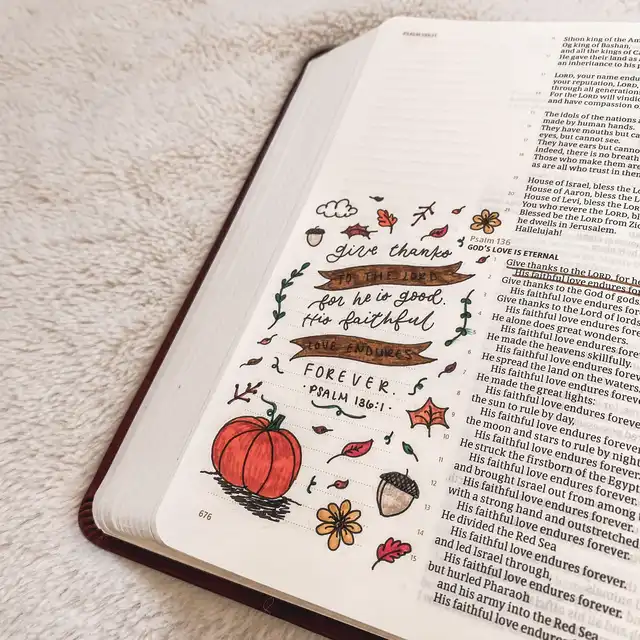 PSALM 135:11
Sihon king of the Am
Og king of Bashan,
and all the kings of C
He gave their land as
an inheritance to his p
LORD, your name endu
your reputation, LORD
through all generation
For the LORD will vindi
and have compassion o
The idols of the nations a
made by human hands.
They have mouths but ca
eyes, but cannot see.
They have ears but canno
indeed, there is no breath
Those who make them are
as are all who trust in them
House of Israel, bless the LO
House of Aaron, bless the LOR
House of Levi, bless the LORD
You who revere the LORD, bl
Blessed be the LORD from Zio
he dwells in Jerusalem.
Hallelujah!
Psalm 136
GOD'S LOVE IS ETERNAL
Give thanks to the LORD, for he
His faithful love endures for
Give thanks to the God of gods
His faithful love endures fore
Give thanks to the Lord of lords
His faithful love endures fore
He alone does great wonders.
His faithful love endures forev
He made the heavens skillfully.
His faithful love endures forev
He spread the land on the waters.
His faithful love endures foreve
He made the great lights:
His faithful love endures forever
the sun to rule by day,
His faithful love endures forever.
the moon and stars to rule by night
His faithful love endures forever.
He struck the firstborn of the Egypt
His faithful love endures forever.
and brought Israel out from among
His faithful love endures forever.
with a strong hand and outstretched
His faithful love endures forever.
He divided the Red Sea
His faithful love endures forever.
and led Israel through,
His faithful love endures forever.
but hurled Pharaoh
and his army into the Red Sea.
His faithful love endures
give thanks
TO THE LORD
for he is good.
His faithful
LOVE ENDURES
FOREVER.
·PSALM 136:1·
676